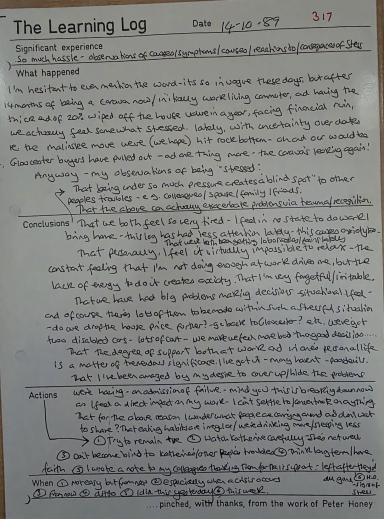 317
The Learning Log Date 14-10-89
Significant experience
So much hassle - observations of causes/symptoms/causes/reactions to/consequences of stress
What happened
I'm hesitant to even mention the word - its so in vogue these days. but after
14 months of being a caravan now/initially work living commuter, and having the
thick end of 20% wiped off the house value in a year, facing financial ruin,
we actually feel somewhat stressed. lately, with uncertainty over dates
re the move were (we hope) hit rock bottom - and our would be
Gloucester buyers have pulled out - and one thing more - the caravan's leaking again!
Anyway - my observations of being "stressed":
→ That being under so much pressure creates a blind spot to other
peoples troubles - e.g. colleagues/spouse/family/friends.
That the above can actually exacerbate problems via trauma/recession.
Conclusions! That we both feel so very tired - I feel in no state to do work
being home - this log has had less attention lately - this causes anxiety also.
That we've both been getting lots of colds/pains lately
That personally, I feel it virtually impossible to relax - the
constant feeling that I'm not doing enough at work drives me, but the
lack of energy to do it creates anxiety. That I'm very forgetful/irritable.
That we have had big problems making decisions - situational I feel -
and of course there's lots of them to be made within such a stressful situation
- do we drop the house price further? - go back to Gloucester? etc. we've got
two disabled cars - lots of cost - we makeup even more bad than good decisions...
That the degree of support both at work and via one's personal life
is a matter of tremendous significance. I've got it - many haven't - poor devils.
That I've been damaged by my desire to cover up/hide the problems
we're having - an admission of failure - mind you this is breaking down now
Actions as I feel a direct impact on my work - I can't settle to concentrate on anything
That for the above reason I wonder what people are carrying around and don't want
to share? That eating habits are irregular/we're drinking more/sleeping less
① Try to remain true ② Watch Katherine carefully she's not well
③ Don't become blind to Katherine/other peoples troubles ④ Think long term/have
faith ⑤ I wrote a note to my colleagues thanking them for their support - left after they'd
When ① not easy but from now ② especially when a crisis occurs all gone
③ From now ④ ditto ⑤ I did this yesterday ⑥ this week.
....pinched, with thanks, from the work of Peter Honey